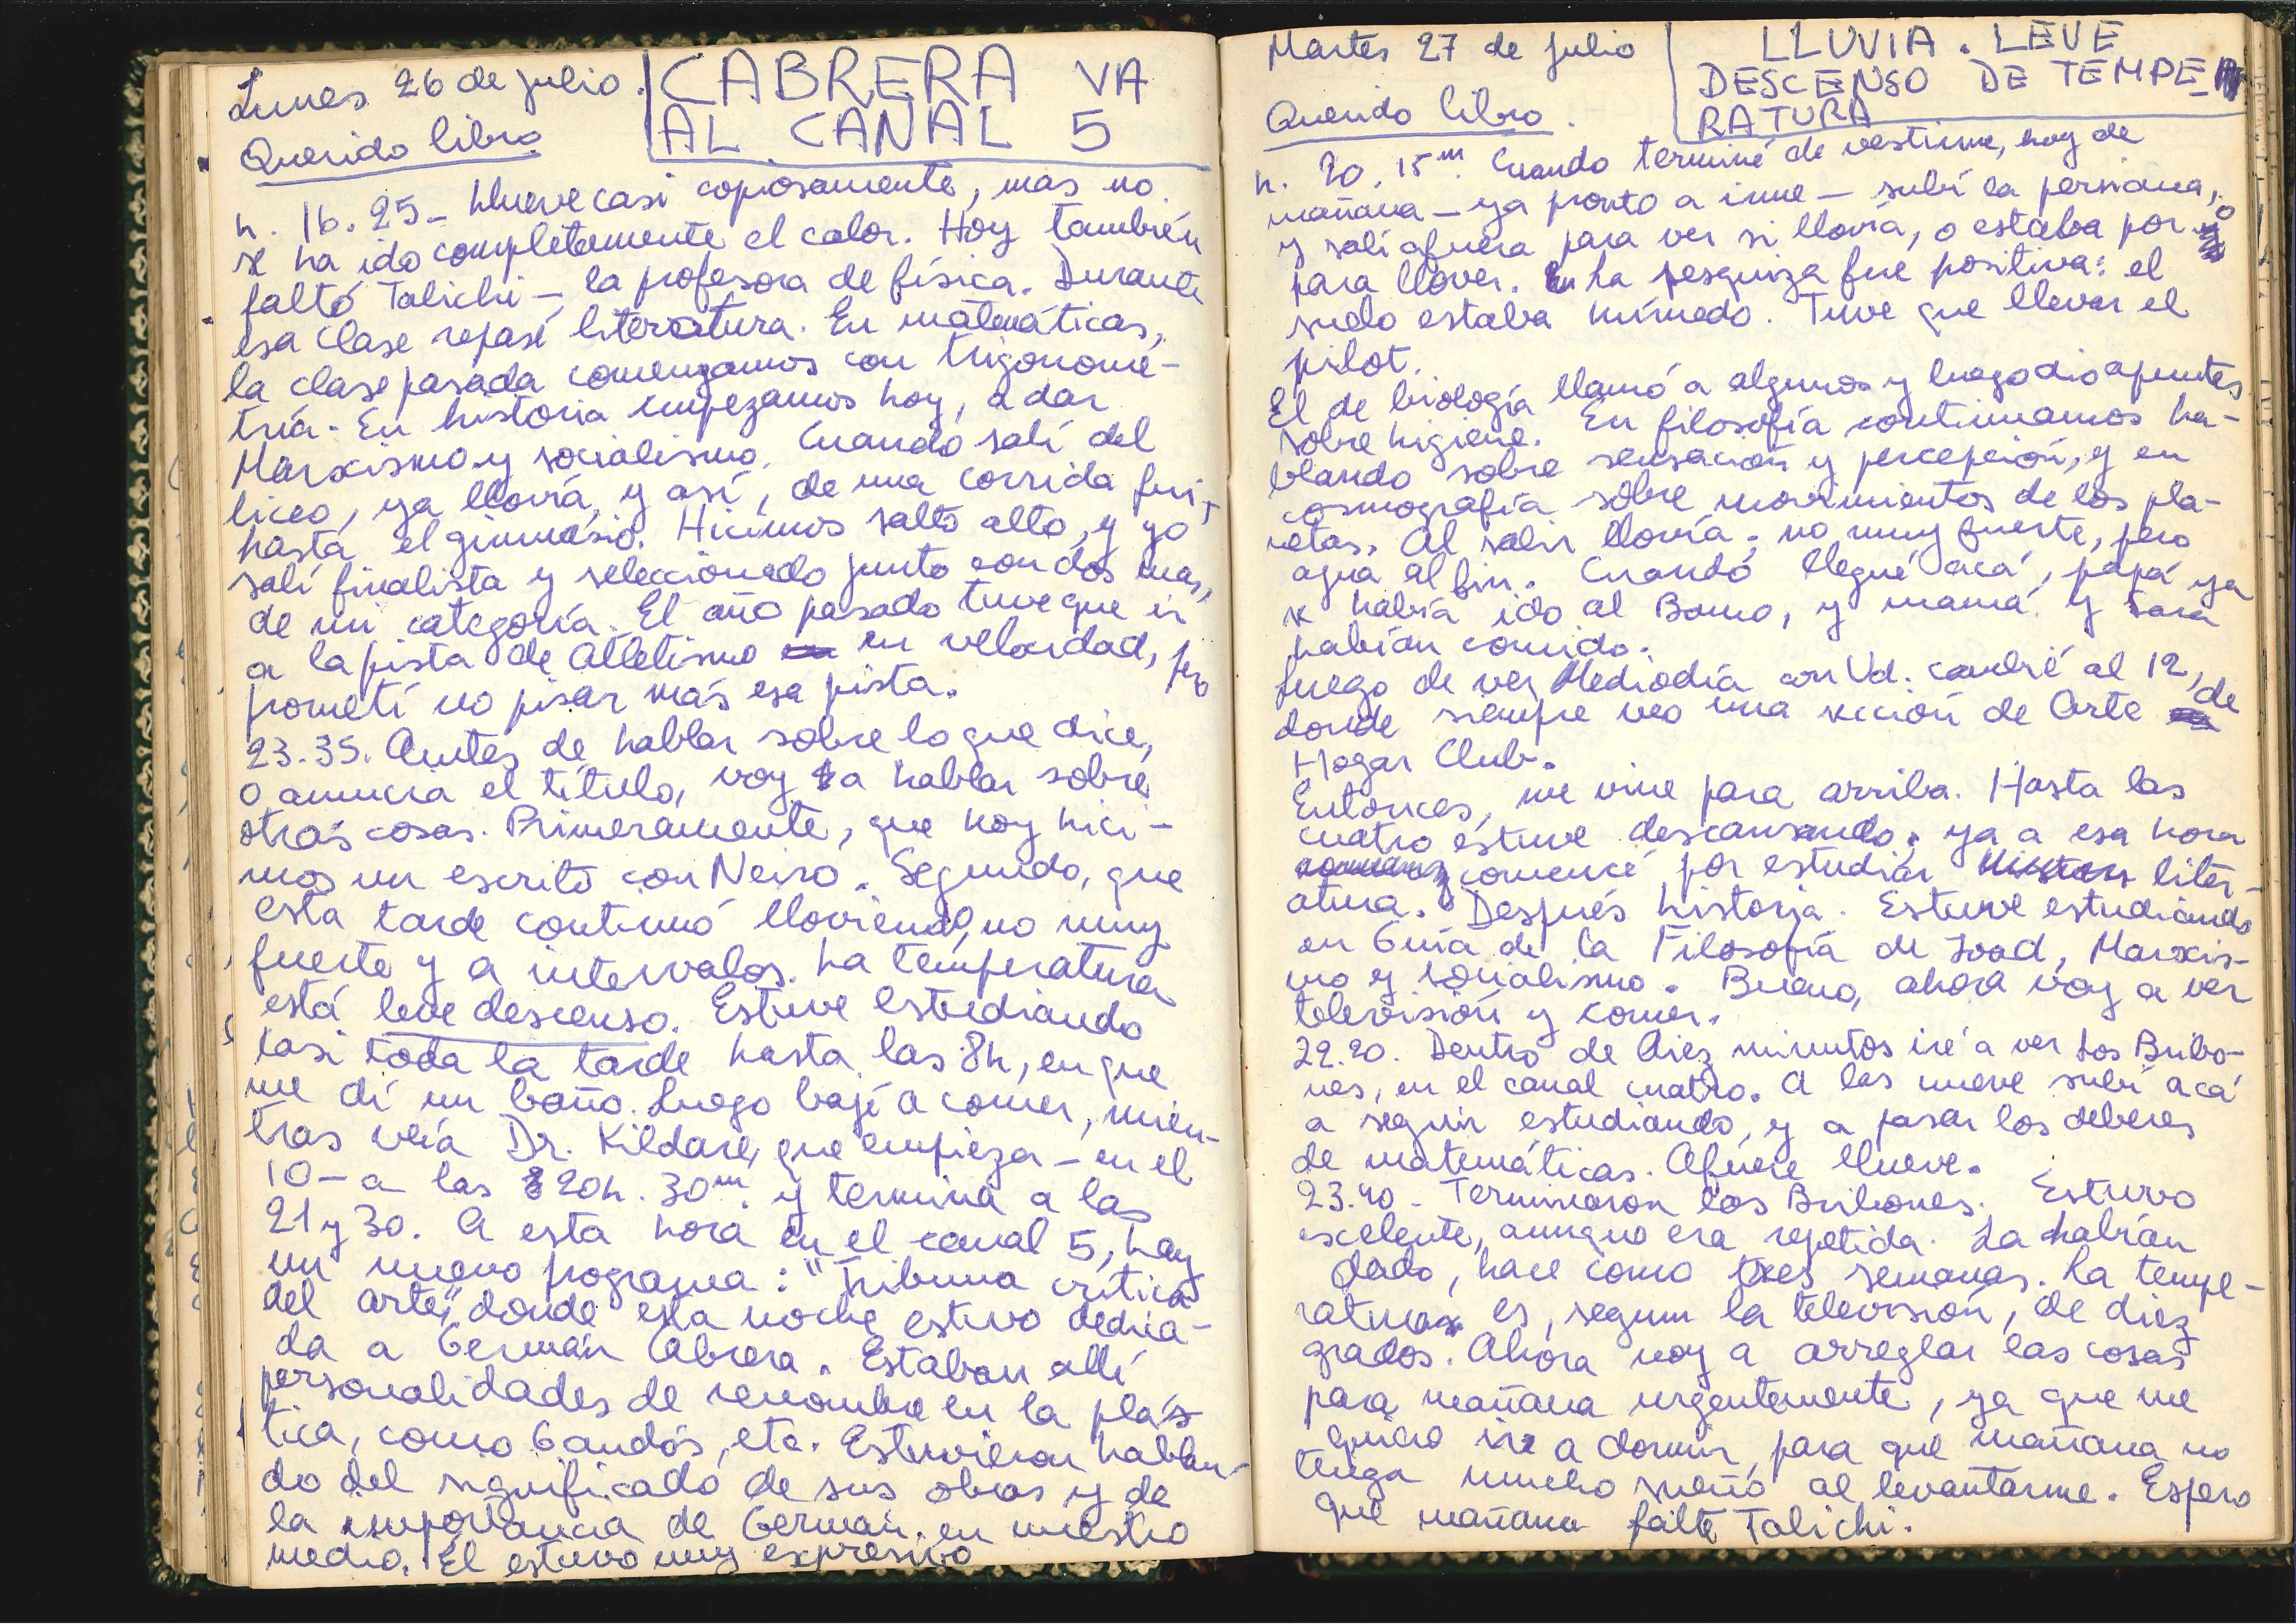 Lunes 26 de julio.
CABRERA VA
AL CANAL 5
Querido libro
h. 16.25 - Llueve casi copiosamente, mas no
se ha ido completamente el calor. Hoy también
faltó Talichi - la profesora de física. Durante
esa clase repasé literatura. En matemáticas,
la clase pasada comenzamos con trigonome-
tría. En historia empezamos hoy, a dar
Marxismo y socialismo. Cuando salí del
liceo, ya llovía, y así, de una corrida fui,
hasta el gimnasio. Hicimos salto alto, y yo
salí finalista y seleccionado junto con dos mas,
de mi categoría. El año pasado tuve que ir
a la pista de Atletismo en velocidad, pero
prometí no pisar más esa pista.
23.35. Antes de hablar sobre lo que dice,
o anuncia el título, voy a hablar sobre
otras cosas. Primeramente, que hoy hici-
mos un escrito con Neiro. Segundo, que
esta tarde continuó lloviendo, no muy
fuerte y a intervalos. La temperatura
está leve descenso. Estuve estudiando
casi toda la tarde hasta las 8h, en que
me dí un baño. Luego bajé a comer, mien-
tras veía Dr. Kildare, que empieza - en el
10 - a las 20h. 30m. y termina a las
21 y 30. A esta hora en el canal 5, hay
un nuevo programa: "Tribuna crítica
del arte", donde esta noche estuvo dedica-
da a Germán Cabrera. Estaban allí
personalidades de renombre en la plás
tica, como Gandós, etc. Estuvieron hablan-
do del significado de sus obras y de
la importancia de Germán en nuestro
medio. El estuvo muy expresivo
Martes 27 de julio
LLUVIA. LEVE
DESCENSO DE TEMPE
RATURA
Querido libro.
h. 20.15m. Cuando terminé de vestirme, hoy de
mañana - ya pronto a irme - subí la persiana,
y salí afuera para ver si llovía, o estaba por o
para llover. La pesquiza fue positiva: el
suelo estaba húmedo. Tuve que llevar el
pilot.
El de biología llamó a algunos y luego dio apuntes
sobre higiene. En filosofía continuamos ha-
blando sobre sensación y percepción, y en
cosmografía sobre movimientos de los pla-
netas. Al salir llovía; no muy fuerte, pero
agua al fin. Cuando llegué acá, papá ya
se había ido al Banco, y mamá y Sara
habían comido.
Luego de ver Mediodía con Vd. cambié al 12,
donde siempre veo una sección de Arte de
Hogar Club.
Entonces, me vine para arriba. Hasta las
cuatro estuve descansando; ya a esa hora
comencé por estudiar liter-
atura. Después historia. Estuve estudiando
en Guía de la Filosofía de Joad, Marxis-
mo y socialismo. Bueno, ahora voy a ver
televisión y comer.
22.20. Dentro de diez minutos iré a ver Los Bribo-
nes, en el canal cuatro. A las nueve subí acá
a seguir estudiando, y a pasar los deberes
de matemáticas. Afuera llueve.
23.40 - Terminaron los Bribones. Estuvo
excelente, aunque era repetida. La habían
dado, hace como tres semanas. La tempe-
ratura es, segun la televisión, de diez
grados. Ahora voy a arreglar las cosas
para mañana urgentemente, ya que me
quiero ir a dormir, para que mañana no
tenga mucho sueño al levantarme. Espero
que mañana falte Talichi.